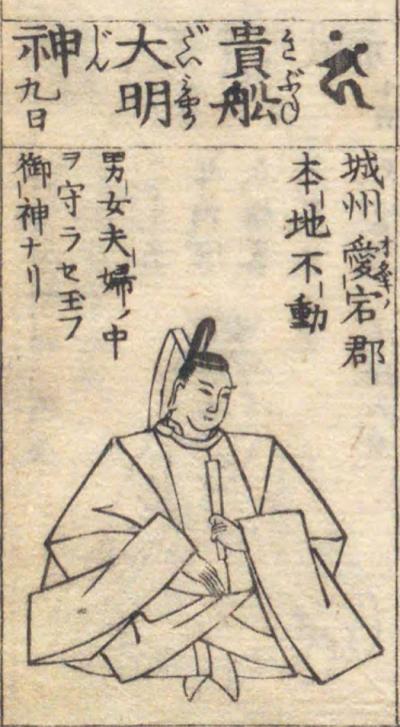 貴舩
きぶね
大明
だいみやう
神九日
じん
城州愛宕郡
本地不動
男女夫婦ノ中
ヲ守ラセ玉フ
御神ナリ